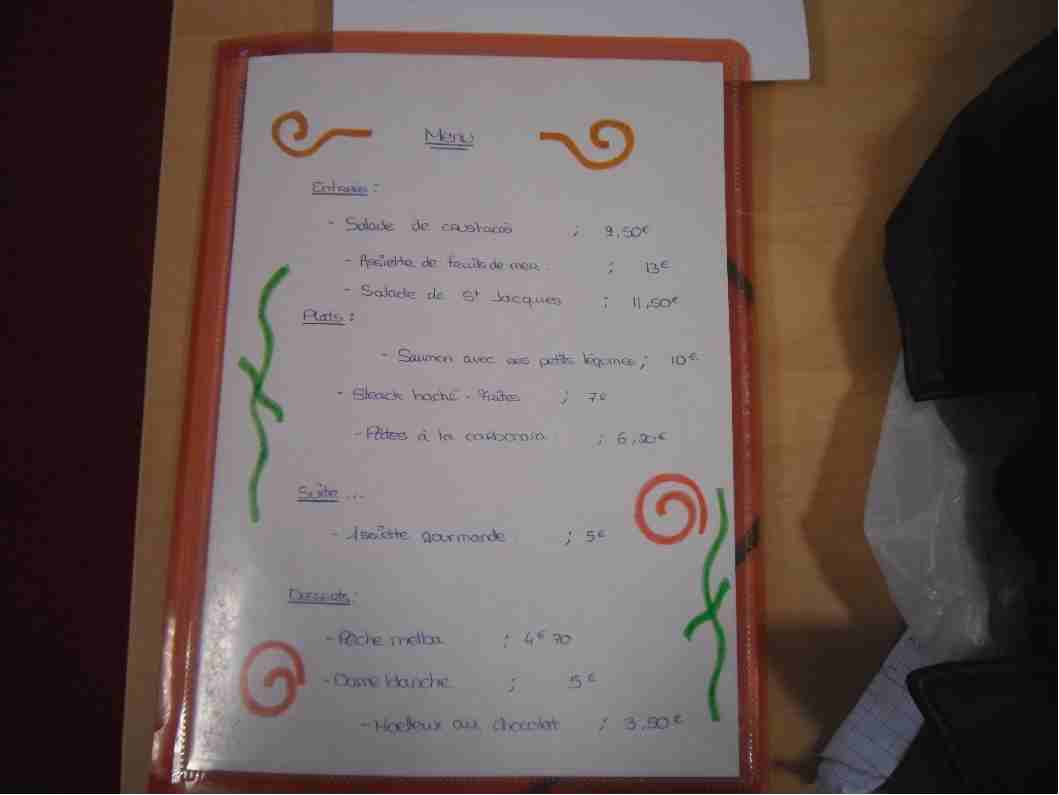 Menu
Entrées :
- Salade de crustacés ; 9,50€
- Assiette de fruits de mer. ; 13€
- Salade de St Jacques ; 11,50€
Plats :
- Saumon avec ses petits légumes ; 10€
- Steack haché - Frites ; 7€
- Pâtes à la carbonara ; 6,20€
Suite ...
- Assiette gourmande ; 5€
Desserts :
- Pêche melba ; 4€70
- Dame blanche ; 5€
- Moelleux au chocolat ; 3,50€